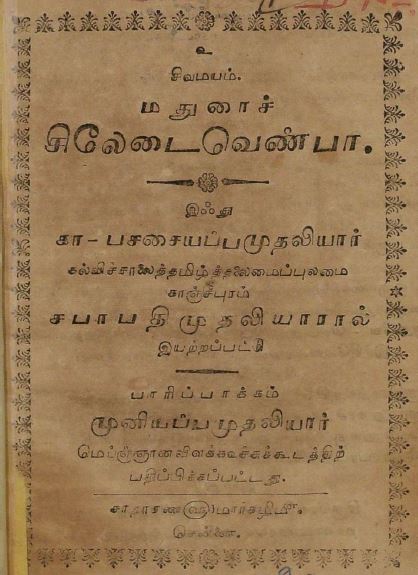 உ
சிவமயம்.
மதுரைச்
சிலேடைவெண்பா.
இஃது
கா - பச்சையப்பமுதலியார்
கல்விச்சாலைத்தமிழ்த்தலைமைப்புலமை
காஞ்சீபுரம்
சபாபதிமுதலியாரால்
இயற்றப்பட்டு
பாரிப்பாக்கம்
முனியப்பமுதலியார்
பதிப்பிக்கப்பட்டது.
சாதாரணளுமார்கழிமீ.
சென்னை.